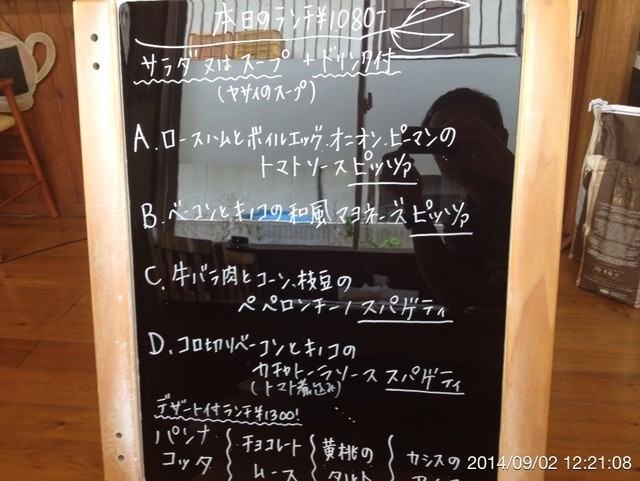 本日のランチ¥1080-
サラダ又はスープ + ドリンク付
(ヤサイのスープ)
A. ロースハムとボイルエッグ、オニオン、ピーマンの
トマトソース ピッツァ
B. ベーコンとキノコの和風マヨネーズ ピッツァ
C. 牛バラ肉とコーン、枝豆の
ペペロンチーノ スパゲティ
D. コロ切りベーコンとキノコの
カチャトーラソース スパゲティ
(トマト煮込み)
デザート付ランチ¥1300!
パンナ チョコレート 黄桃の カシスの
コッタ ムース タルト
2014/09/02 12:21:08